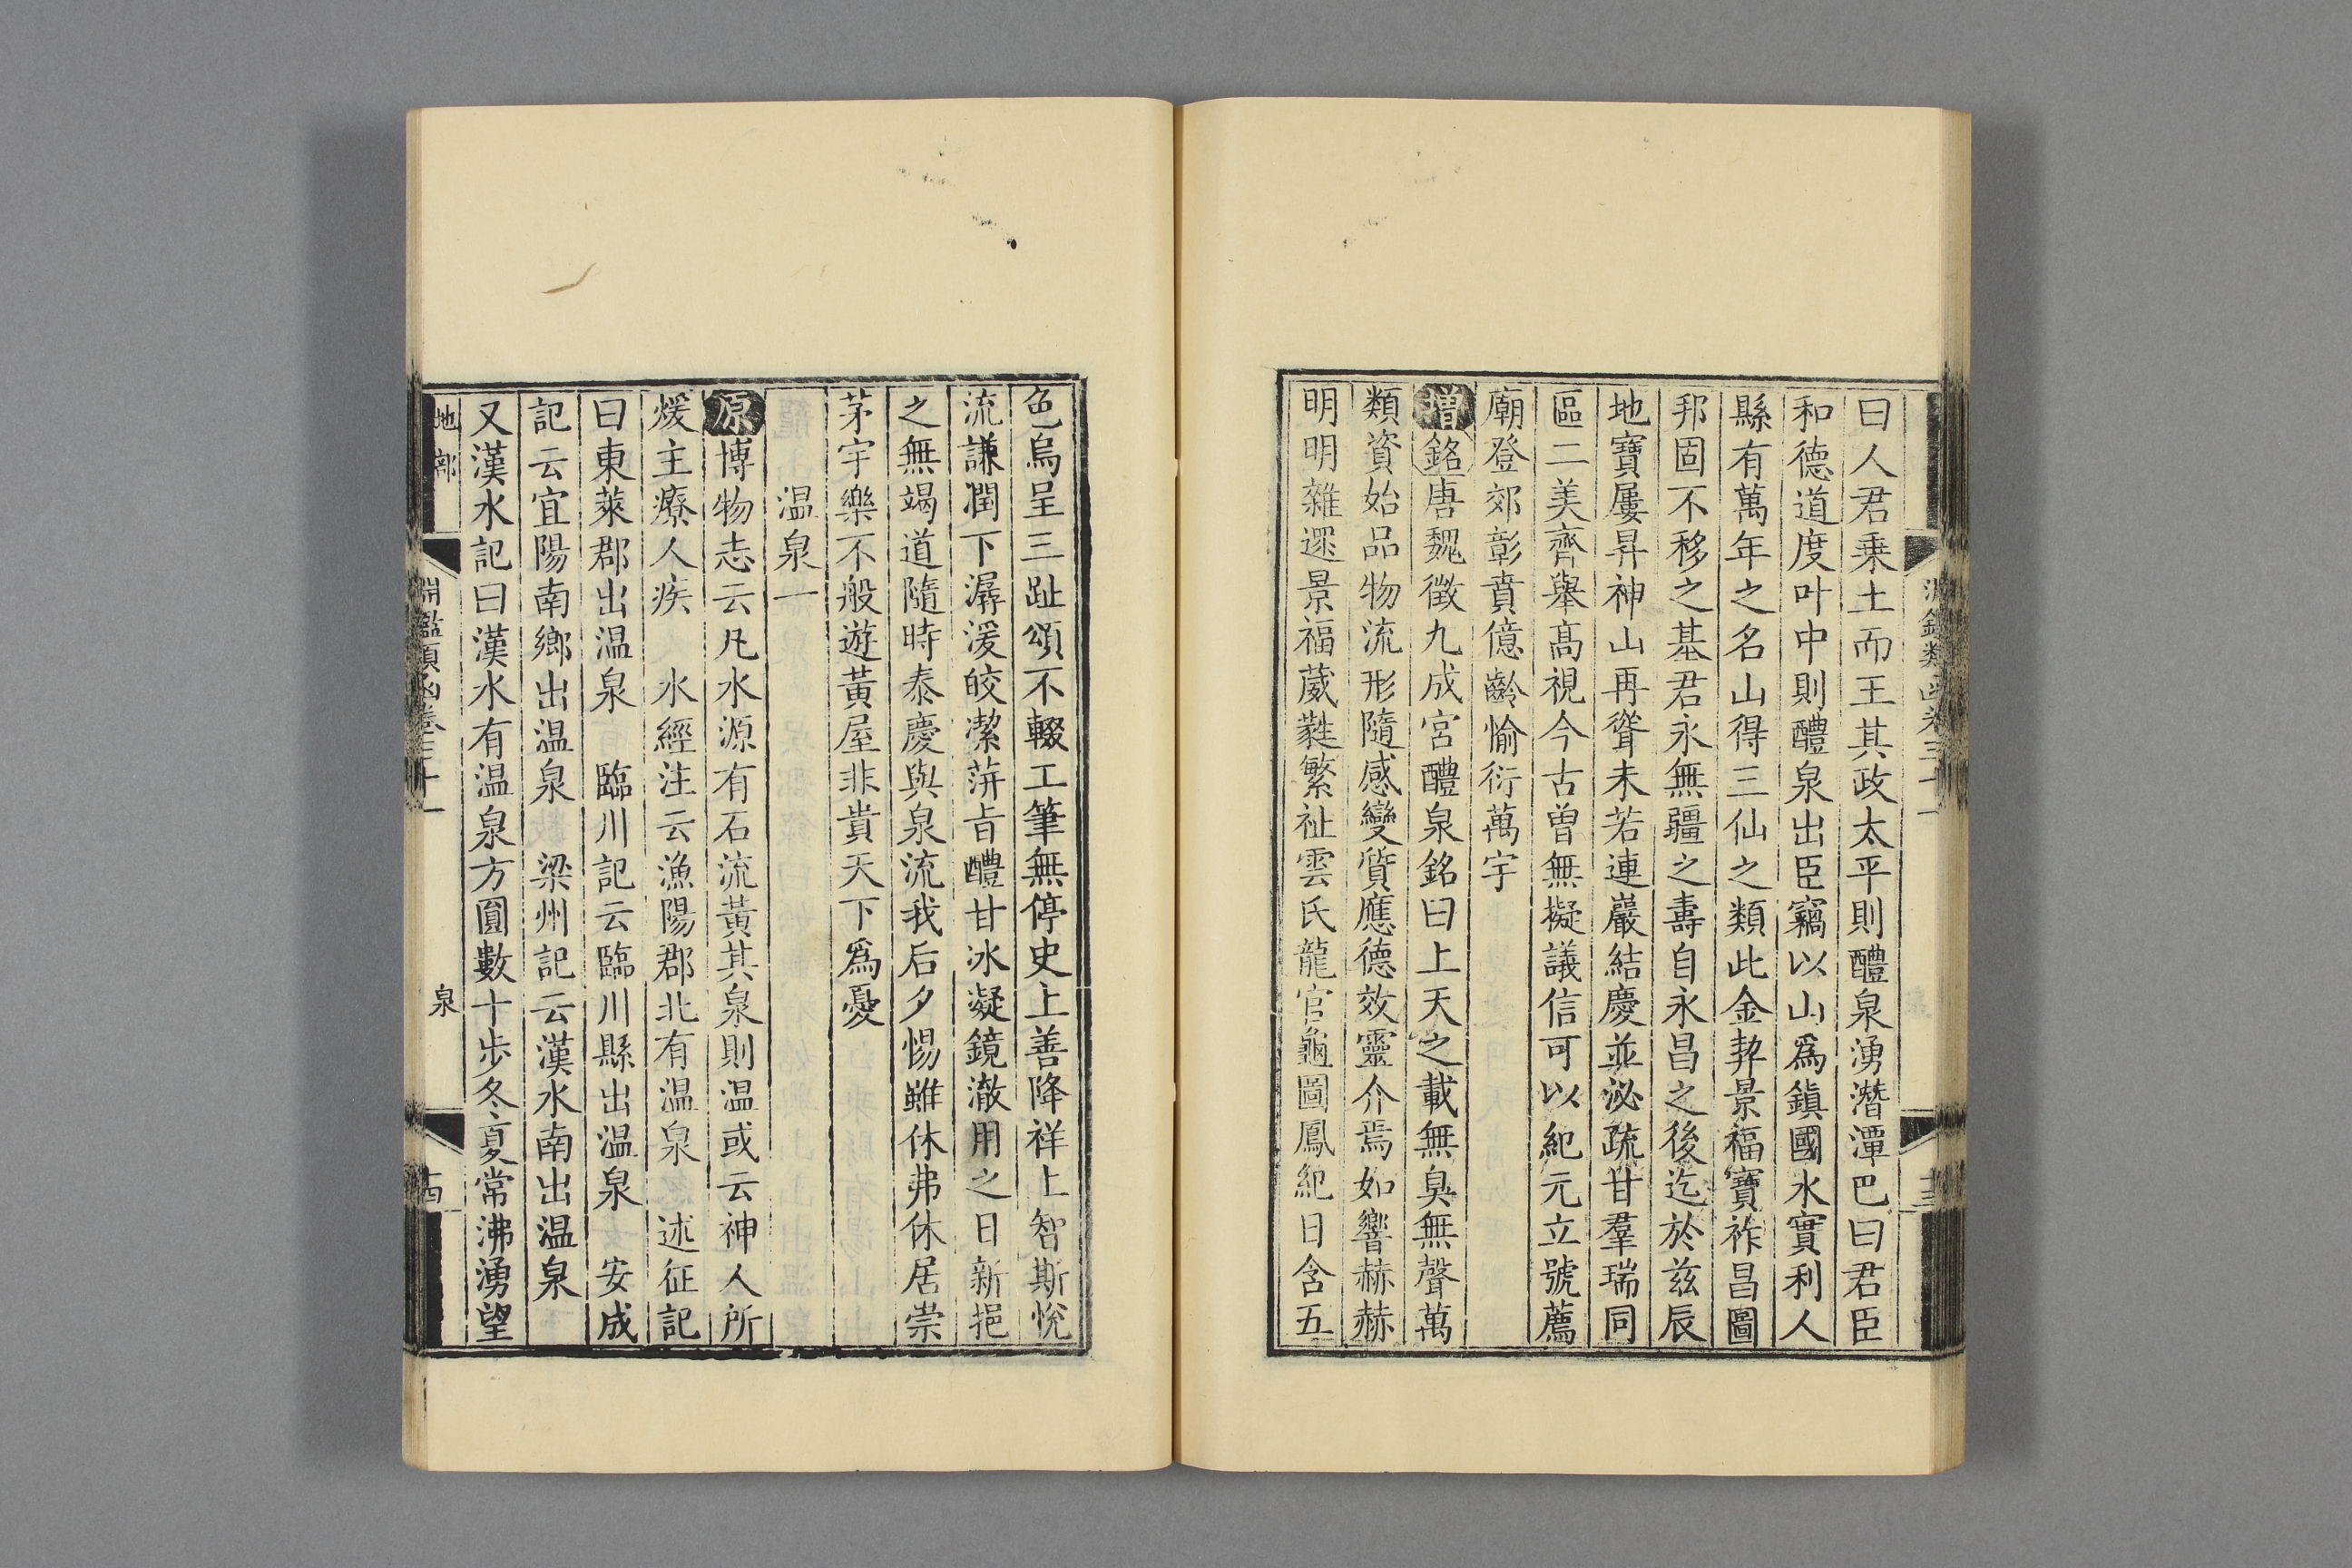 曰人君乗土而王其政太平則醴泉湧潛潭巴曰君臣
和德道度叶中則醴泉出臣竊以山爲鎮國水實利人
縣有萬年之名山得三仙之類此金契景福寶祚昌圖
邦固不移之基君永無疆之壽自永昌之後迄於茲辰
地寶屢昇神山再聳未若連巖結慶並泌疏甘羣瑞同
區二美齊舉高視今古曾無擬議信可以紀元立號薦
廟登郊彰賁億齡愉衍萬宇
增銘唐魏徵九成宮醴泉銘曰上天之載無臭無聲萬
類資始品物流形隨感變質應德效靈介焉如響赫赫
明明雜遝景福葳蕤繁祉雲氏龍官龜圖鳳紀日含五
淵鑑類函卷三十一
十三
色烏呈三趾頌不輟工筆無停史上善降祥上智斯悅
流謙潤下潺湲皎潔蓱旨醴甘冰凝鏡澈用之日新挹
之無竭道隨時泰慶與泉流我后夕惕雖休弗休居崇
茅宇樂不般遊黃屋非貴天下爲憂
温泉一
原博物志云凡水源有石流黃其泉則温或云神人所
煖主療人疾　水經注云漁陽郡北有温泉　述征記
曰東萊郡出温泉　臨川記云臨川縣出温泉　安成
記云宜陽南鄉出温泉　梁州記云漢水南出温泉
又漢水記曰漢水有温泉方圓數十步冬夏常沸湧望
地部
淵鑑類函卷三十一
泉
十四